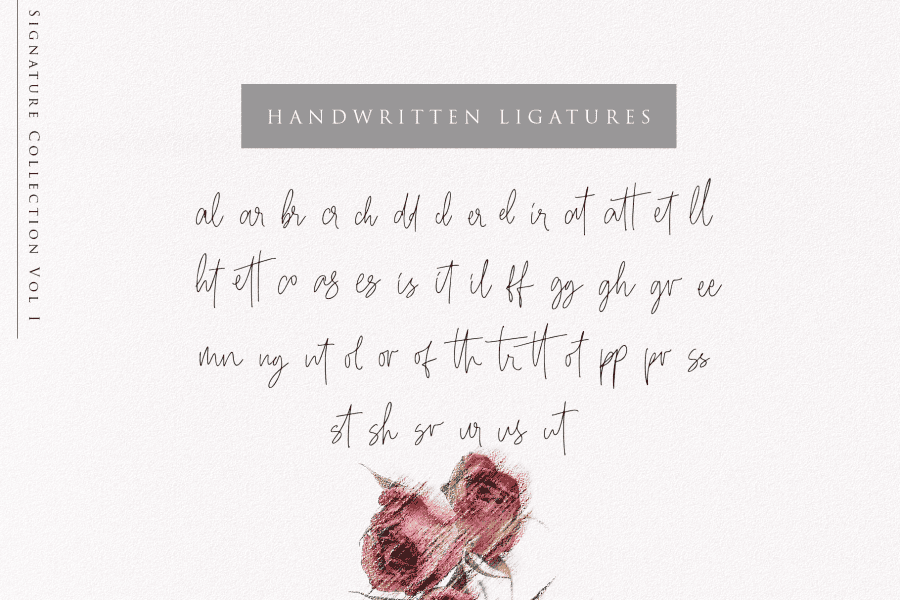 Signature Collection Vol I
HANDWRITTEN LIGATURES
al ar br cr ch dd cl er el ir at att et ll
ht ett co as es is it il ff gg gh gr ee
mn ng nt ol or of th tr tt ot pp pr ss
st sh sr ur us ut